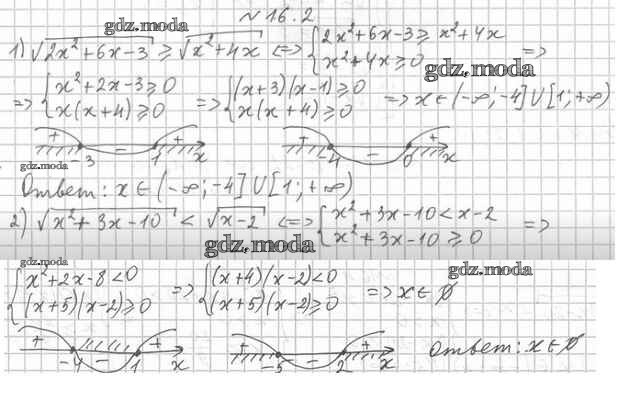 № 16.2
gdz.moda
1) √(2x²+6x-3) ≥ √(x²+4x) <=> { 2x²+6x-3 ≥ x²+4x
x²+4x ≥ 0 =>
gdz.moda
=> { x²+2x-3 ≥ 0
x(x+4) ≥ 0 => { (x+3)(x-1) ≥ 0
x(x+4) ≥ 0 => x ∈ (-∞; -4] ∪ [1; +∞)
+ -3 - 1 + x
+ -4 - 0 + x
gdz.moda
Ответ: x ∈ (-∞; -4] ∪ [1; +∞)
2) √(x²+3x-10) < √(x-2) <=> { x²+3x-10 < x-2
x²+3x-10 ≥ 0 =>
gdz.moda
gdz.moda
gdz.moda
{ x²+2x-8 < 0
(x+5)(x-2) ≥ 0 => { (x+4)(x-2) < 0
(x+5)(x-2) ≥ 0 => x ∈ ∅
+ -4 - 1 + x
+ -5 - 2 + x
Ответ: x ∈ ∅